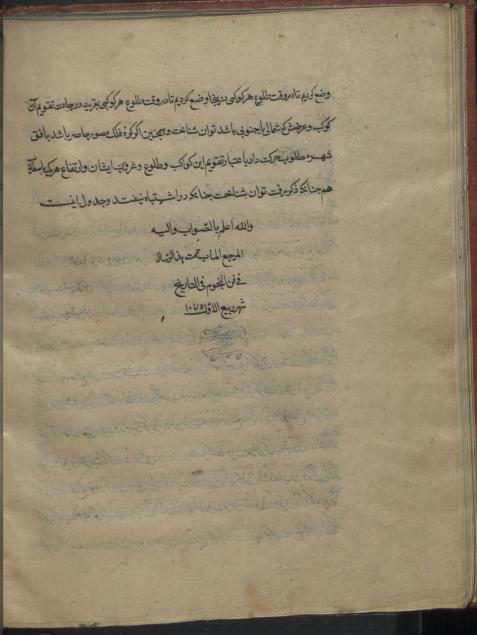 وضع کردیم تا در وقت طلوع هر کوکبی در ینجا وضع کردیم تا در وقت طلوع هر کوکبی بقرینه درجات تقویم آن
کوکب و عرضش که شمالی یا جنوبی باشد توان شناخت و همچنین اگر کرهٔ فلک مصور حاضر باشد بافق
شهر مطلوب حرکت داد باعتبار تقویم این کواکب و طلوع و غروب ایشان و ارتفاع هر یک باسطرلاب
هم چنانکه ذکر رفت توان شناخت چنانکه در اشتباه نیفتد و جدول اینست
والله اعلم بالصواب والیه
المرجع المآب تمت هذا الرساله
فی فن النجوم فی التاریخ
شهر ربیع الاول ۱۰۷۵